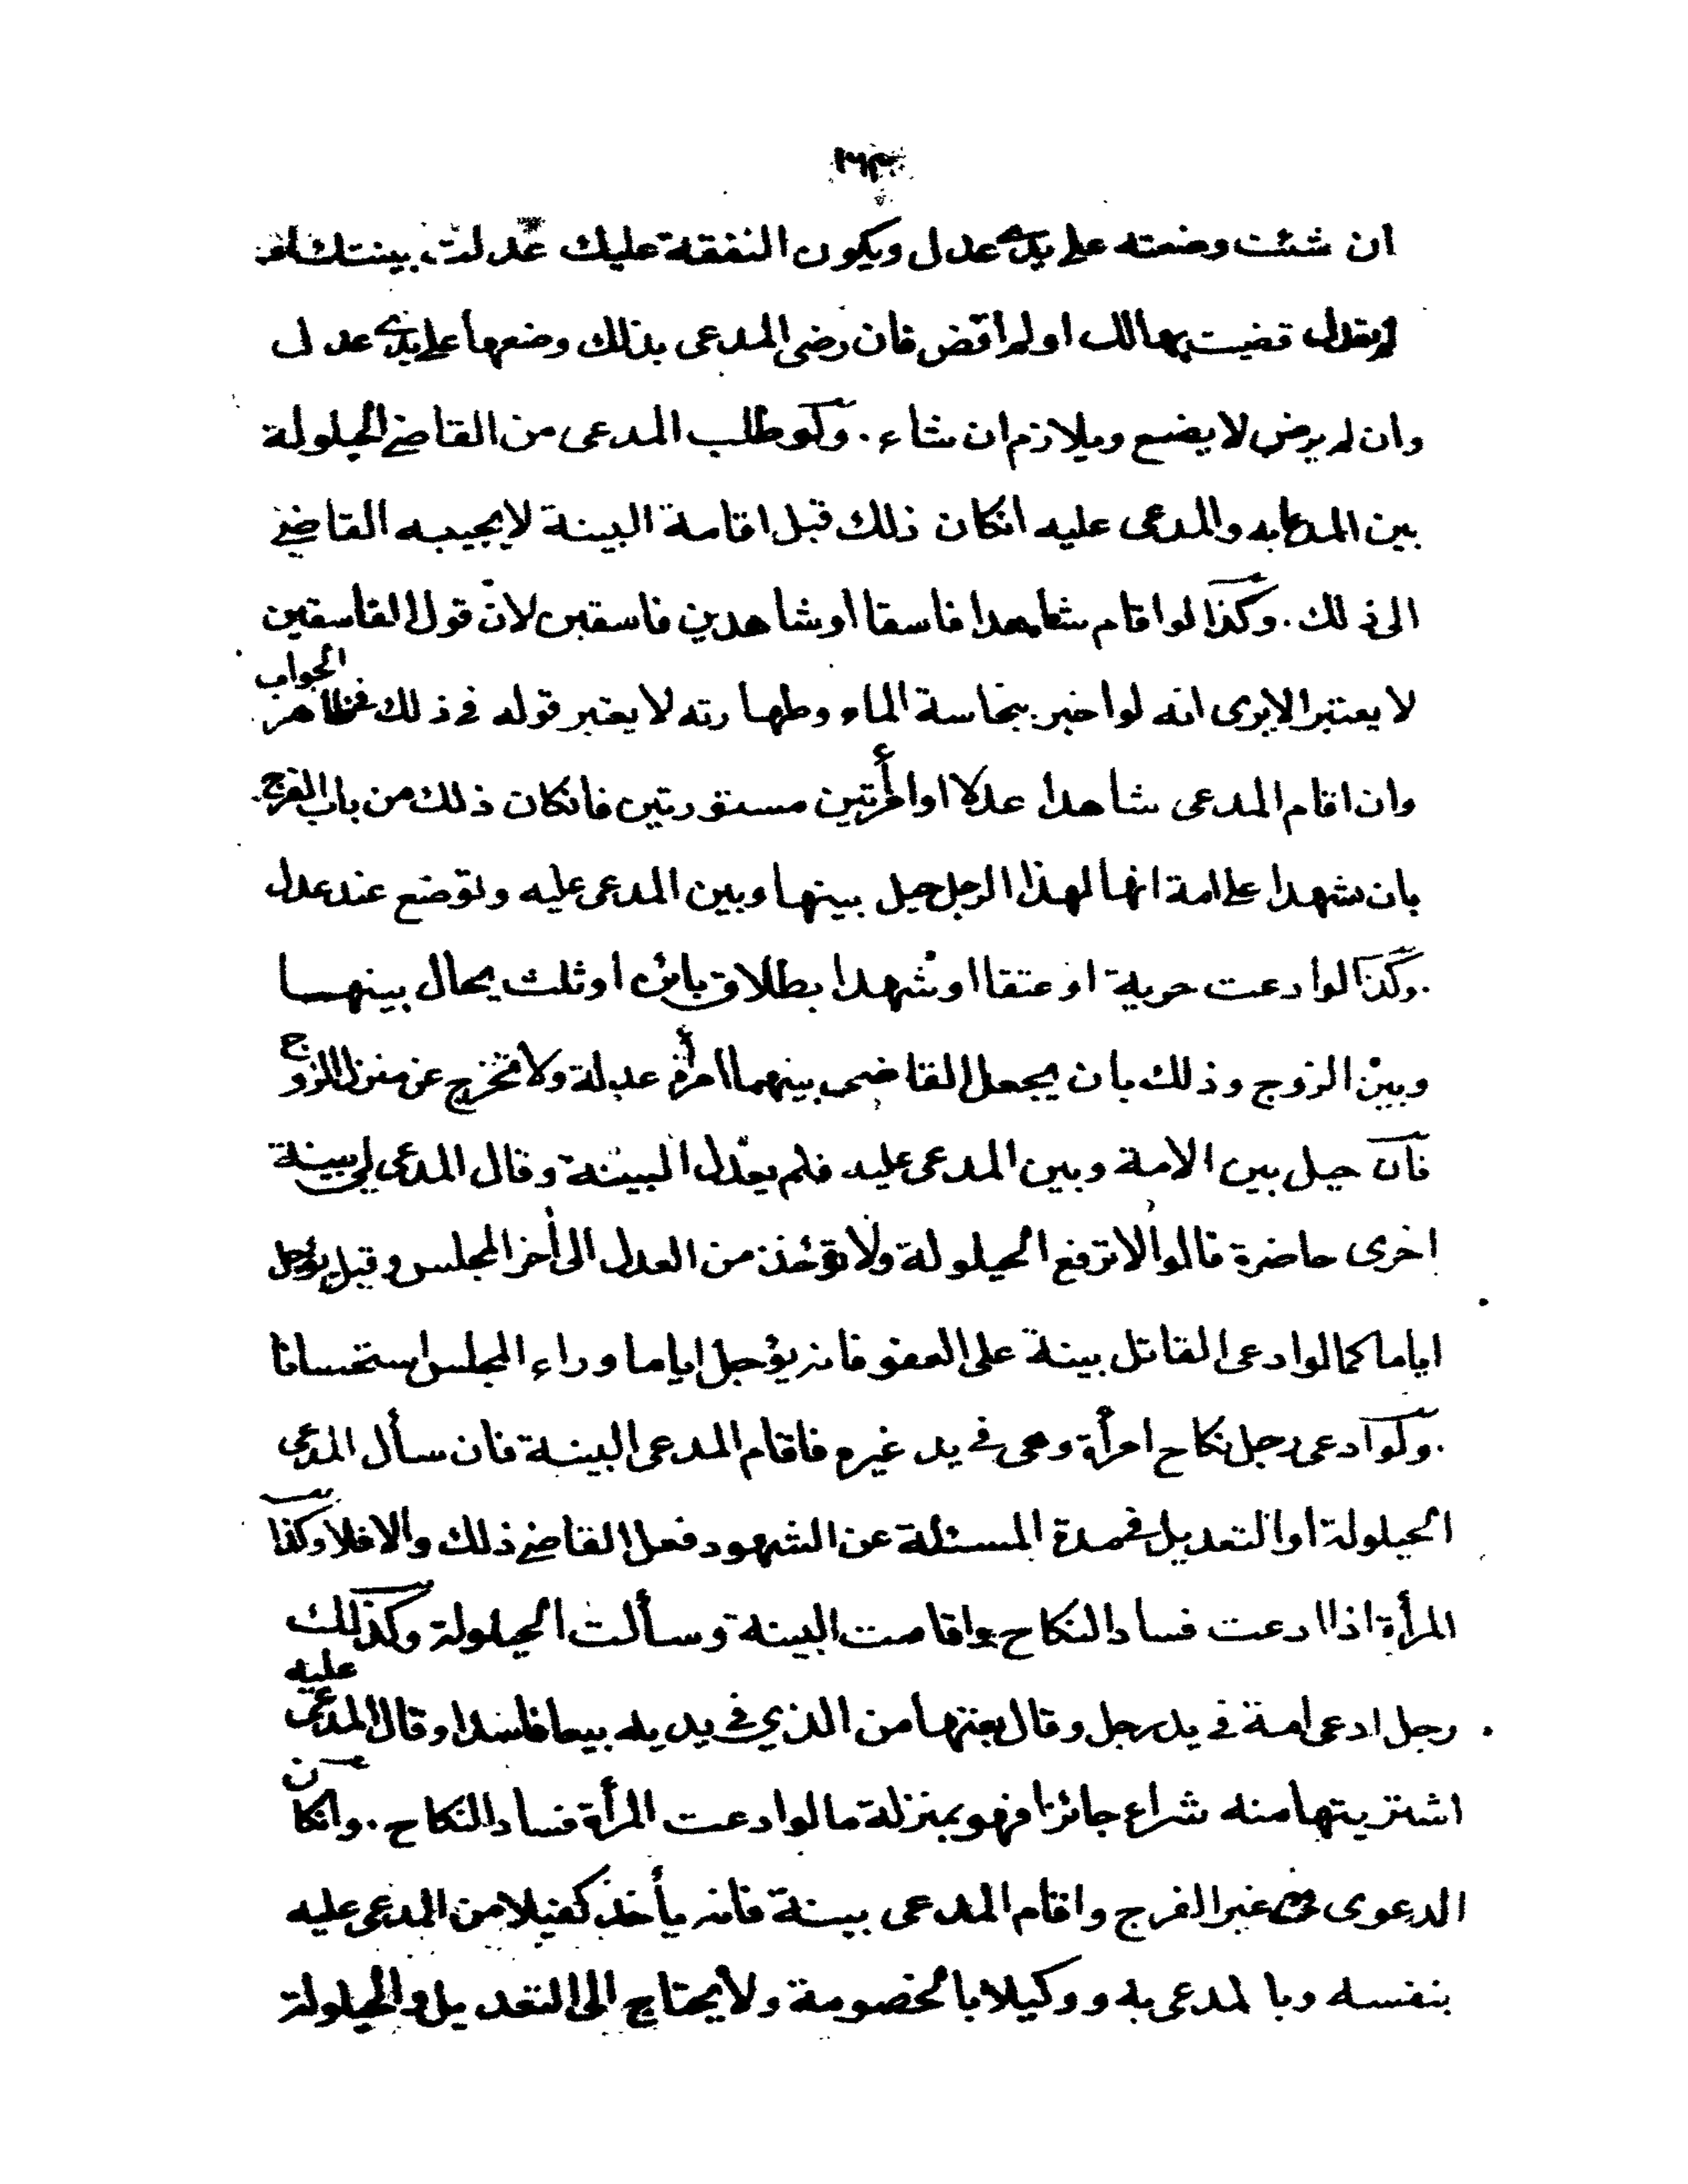 ١٦٣
ان شئت وضعته على يدى عدل ويكون النفقة عليك عدلت بينتك او
لم تعدل قضيت بها لك او لم اقض فان رضى المدعى بذلك وضعها على يدى عدل
وان لم يرض لا يضع ويلازم ان شاء . ولو طلب المدعى من القاضي الحيلولة
بين المدعا به والمدعى عليه انكان ذلك قبل اقامة البينة لا يجيبه القاضي
الى ذلك . وكذا لو اقام شاهدا فاسقا او شاهدين فاسقين لان قول الفاسقين
لا يعتبر الا يرى انه لو اخبر بنجاسة الماء وطهارته لا يعتبر قوله في ذلك في ظاهر الجواب
وان اقام المدعى شاهدا عدلا او امرأتين مستورتين فانكان ذلك من باب الفرج
بان شهدا على امة انها لهذا الرجل حيل بينها وبين المدعى عليه وتوضع عند عدل
. وكذا لو ادعت حرية او عتقا او شهدا بطلاق بائن او ثلث يحال بينهما
وبين الزوج وذلك بان يجعل القاضى بينهما امرأة عدلة ولا تخرج عن منزل الزوج
فان حيل بين الامة وبين المدعى عليه فلم يعدل البينة وقال المدعى لي بينة
اخرى حاضرة قالوا لا ترفع الحيلولة ولا تؤخذ من العدل الى أخر المجلس وقيل يؤجل
اياما كما لو ادعى القاتل بينة على العفو فانه يؤجل اياما وراء المجلس استحسانا
. ولو ادعى رجل نكاح امرأة وهى في يد غيره فاقام المدعى البينة فان سأل المدعى
الحيلولة او التعديل في مدة المسئلة عن الشهود فعل القاضي ذلك والا فلا وكذا
المرأة اذا ادعت فساد النكاح واقامت البينة وسألت الحيلولة وكذلك
رجل ادعى امة في يد رجل وقال بعتها من الذي في يديه بيعا فاسدا وقال المدعى عليه
اشتريتها منه شراء جائزا فهو بمنزلة ما لو ادعت المرأة فساد النكاح . وانكان
الدعوى في غير الفرج واقام المدعى بينة فانه يأخذ كفيلا من المدعى عليه
بنفسه وبالمدعى به ووكيلا بالخصومة ولا يحتاج الى التعديل والحيلولة